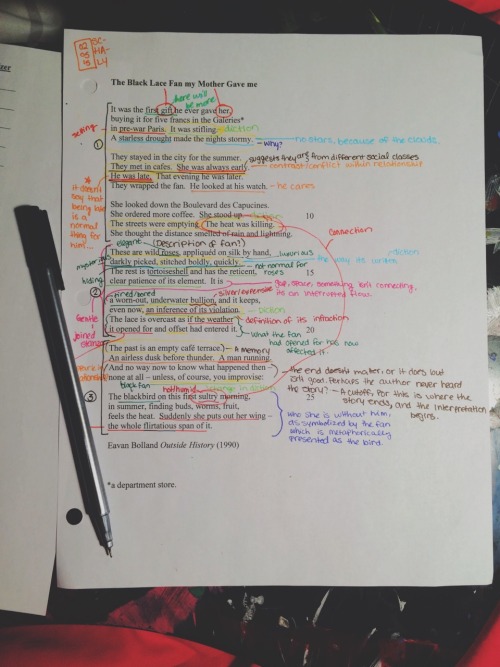 The Black Lace Fan my Mother Gave me
there will be more
It was the first gift he ever gave her,
buying it for five francs in the Galeries*
in pre-war Paris. It was stifling. diction
A starless drought made the nights stormy. why? no stars, because of the clouds.
setting
①
They stayed in the city for the summer. suggests they are from different social classes
They met in cafes. She was always early. contrast/conflict within relationship
He was late. That evening he was later.
They wrapped the fan. He looked at his watch. he cares
* it doesn't say that being late is a normal thing for him...
She looked down the Boulevard des Capucines.
She ordered more coffee. She stood up. 10
The streets were emptying. The heat was killing.
She thought the distance smelled of rain and lightning.
connection
elegant (Description of fan!)
These are wild roses, appliqued on silk by hand, luxurious
darkly picked, stitched boldly, quickly. the way its written diction
not normal for roses
The rest is tortoiseshell and has the reticent, 15
clear patience of its element. It is
gap, space, something isn't connecting, its an interrupted flow.
mysterious
hiding
②
tired/bored silver/expensive
a worn-out, underwater bullion and it keeps,
even now, an inference of its violation. diction
The lace is overcast as if the weather definition of its infraction
it opened for and offset had entered it. 20
what the fan had opened for has now affected it.
The past is an empty café terrace. A memory
An airless dusk before thunder. A man running.
And no way now to know what happened then
none at all – unless, of course, you improvise:
the end doesn't matter, or it does but isn't good. Perhaps the author never heard the story? - A cutoff, for this is where the story ends, and the interpretation begins.
③
black fan
The blackbird on this first sultry morning, 25
in summer, finding buds, worms, fruit,
feels the heat. Suddenly she puts out her wing –
the whole, full, flirtatious span of it.
who she is without him, as symbolized by the fan which is metaphorically presented as the bird.
Eavan Bolland Outside History (1990)
*a department store.